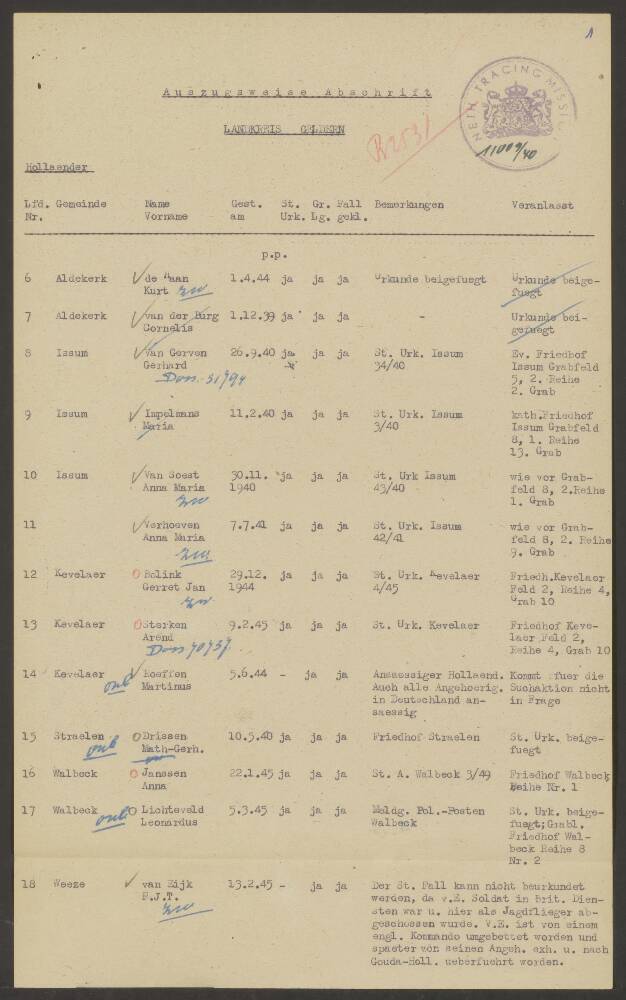 1
Auszugsweise Abschrift
LANDKREIS GELDERN
R 253/
TRACING MISSI
11009/40
Hollaender
Lfd. Gemeinde Name Gest. St. Gr. Fall Bemerkungen Veranlasst
Nr. Vorname am Urk. Lg. gekl.
p.p.
6 Aldekerk de Haan 1.4.44 ja ja ja Urkunde beigefuegt Urkunde beige-
Kurt fuegt
7 Aldekerk van der Burg 1.12.39 ja ja ja - Urkunde bei-
Cornelis gefuegt
8 Issum Van Gerven 26.9.40 ja ja ja St. Urk. Issum Ev. Friedhof
Gerhard 34/40 Issum Grabfeld
Doss. 31794 5, 2. Reihe
2. Grab
9 Issum Impelmans 11.2.40 ja ja ja St. Urk. Issum kath.Friedhof
Maria 3/40 Issum Grabfeld
8, 1. Reihe
13. Grab
10 Issum Van Soest 30.11. ja ja ja St. Urk Issum wie vor Grab-
Anna Maria 1940 43/40 feld 8, 2.Reihe
1. Grab
11 Verhoeven 7.7.41 ja ja ja St. Urk. Issum wie vor Grab-
Anna Maria 42/41 feld 8, 2. Reihe
9. Grab
12 Kevelaer Bolink 29.12. ja ja ja St. Urk. Kevelaer Friedh.Kevelaer
Gerret Jan 1944 4/45 Feld 2, Reihe 4,
Grab 10
13 Kevelaer Sterken 9.2.45 ja ja ja St. Urk. Kevelaer Friedhof Keve-
Arend laer Feld 2,
Doss 70737 Reihe 4, Grab 10
14 Kevelaer Hoeffen 5.6.44 - ja ja Ansaessiger Hollaend. Kommt fuer die
Martinus Auch alle Angehoerig. Suchaktion nicht
in Deutschland an- in Frage
saessig
15 Straelen Drissen 10.5.40 ja ja ja Friedhof Straelen St. Urk. beige-
Math-Gerh. fuegt
16 Walbeck Janssen 22.1.45 ja ja ja St. A. Walbeck 3/49 Friedhof Walbeck
Anna Reihe Nr. 1
17 Walbeck Lichteveld 5.3.45 ja ja ja Meldg. Pol.-Posten St. Urk. beige-
Leonardus Walbeck fuegt;Grabl.
Friedhof Wal-
beck Reihe 8
Nr. 2
18 Weeze van Eijk 13.2.45 - ja ja Der St. Fall kann nicht beurkundet
P.J.T. werden, da v.E. Soldat in Brit. Dien-
sten war u. hier als Jagdflieger ab-
geschossen wurde. V.E. ist von einem
engl. Kommando umgebettet worden und
spaeter von seinen Angeh. exh. u. nach
Gouda-Holl. ueberfuehrt worden.